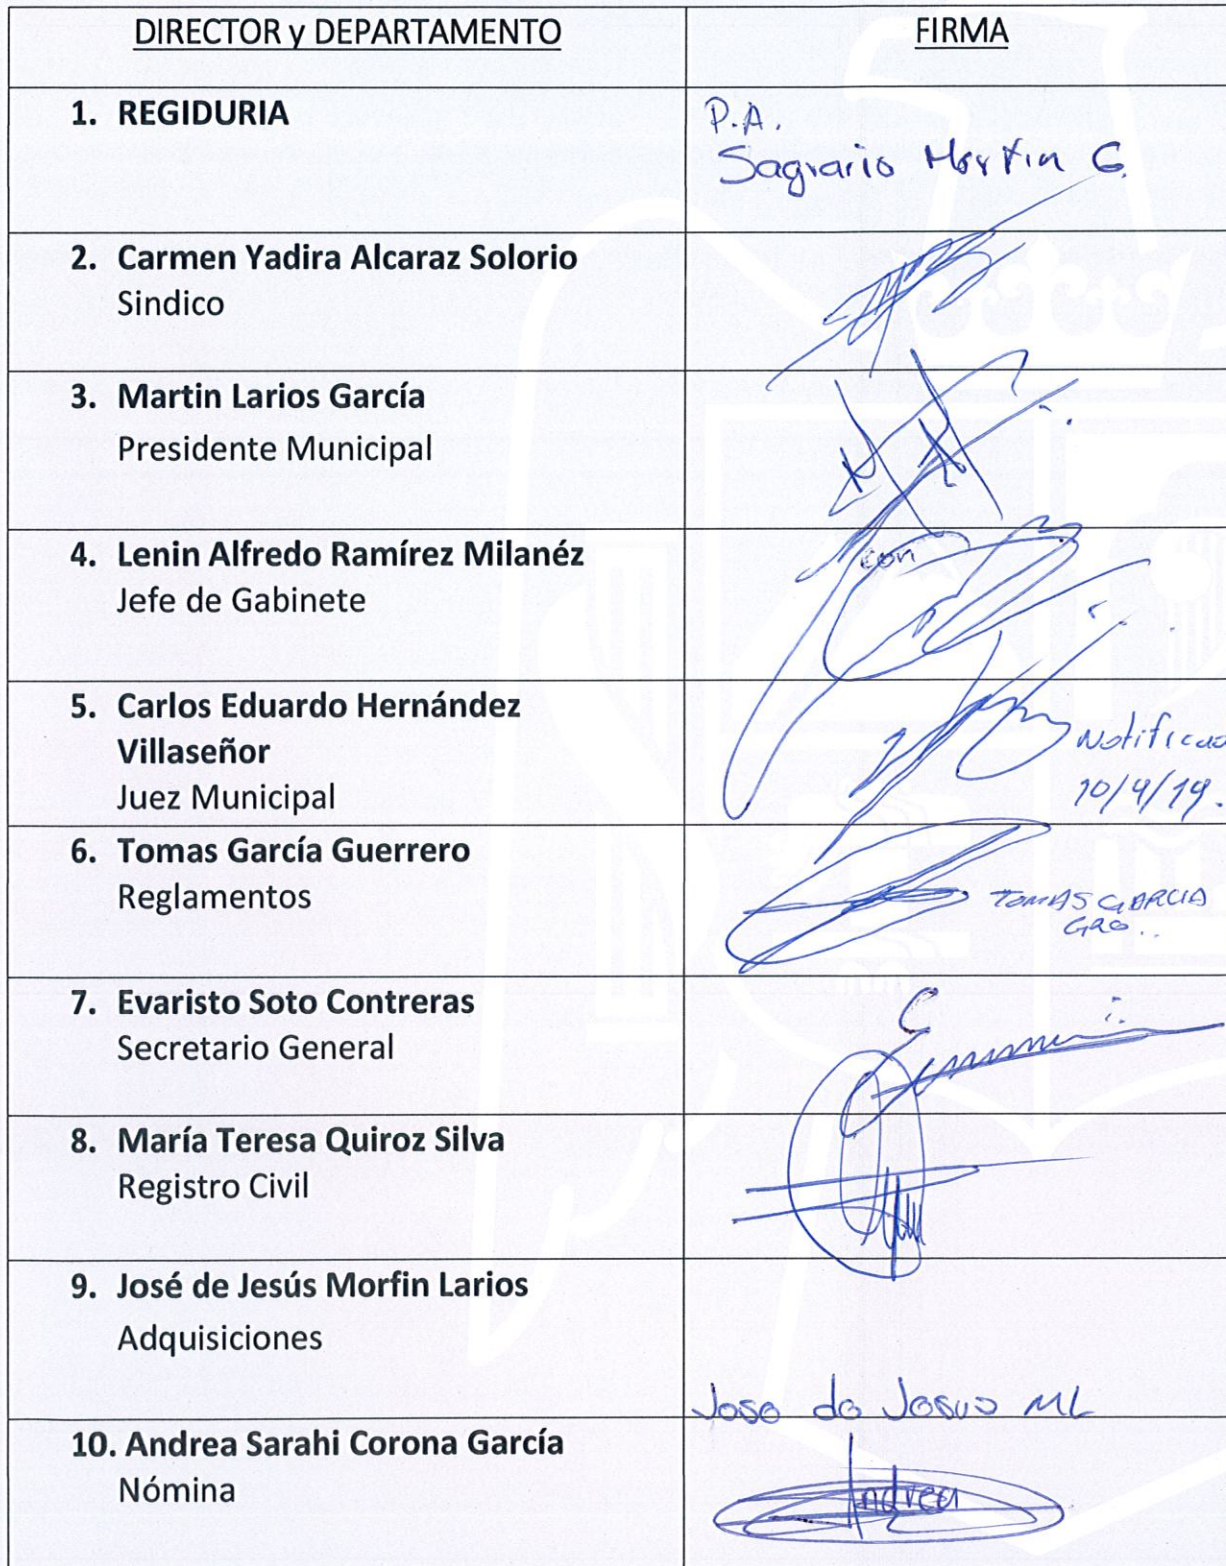 DIRECTOR y DEPARTAMENTO
FIRMA
1. REGIDURIA
P.A.
Sagrario Martin G.
2. Carmen Yadira Alcaraz Solorio
Sindico
3. Martin Larios García
Presidente Municipal
4. Lenin Alfredo Ramírez Milanéz
Jefe de Gabinete
5. Carlos Eduardo Hernández
Villaseñor
Juez Municipal
10/4/19.
6. Tomas García Guerrero
Reglamentos
TOMAS GARCIA
GRO..
7. Evaristo Soto Contreras
Secretario General
8. María Teresa Quiroz Silva
Registro Civil
9. José de Jesús Morfin Larios
Adquisiciones
Jose de Jesus ML
10. Andrea Sarahi Corona García
Nómina
Andrea